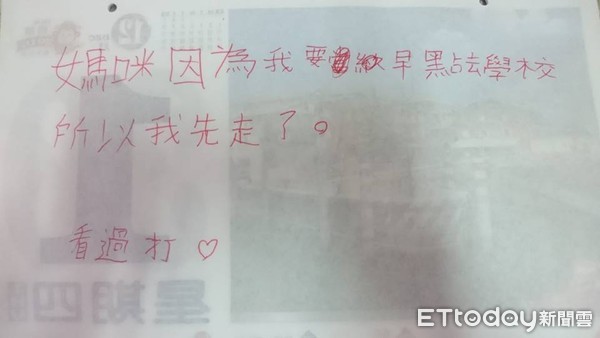 媽咪因為我要早點去學校
所以我先走了。
看過打♡
星期四
12
ETtoday新聞雲